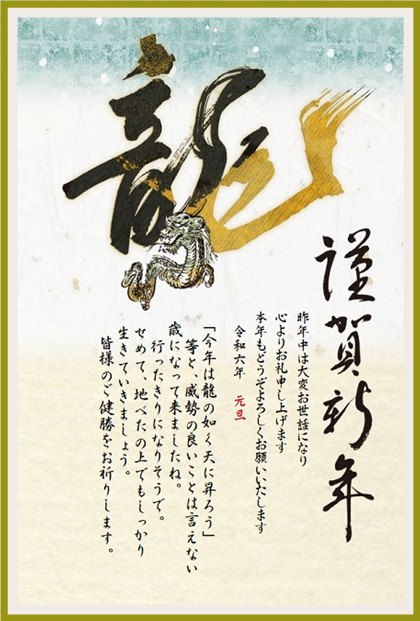 龍
謹賀新年
昨年中は大変お世話になり
心よりお礼申し上げます
本年もどうぞよろしくお願いいたします
令和六年 元旦
「今年は龍の如く天に昇ろう」
等と、威勢の良いことは言えない
歳になって来ましたね。
行ったきりになりそうで。
せめて、地べたの上でもしっかり
生きていきましょう。
皆様のご健勝をお祈りします。